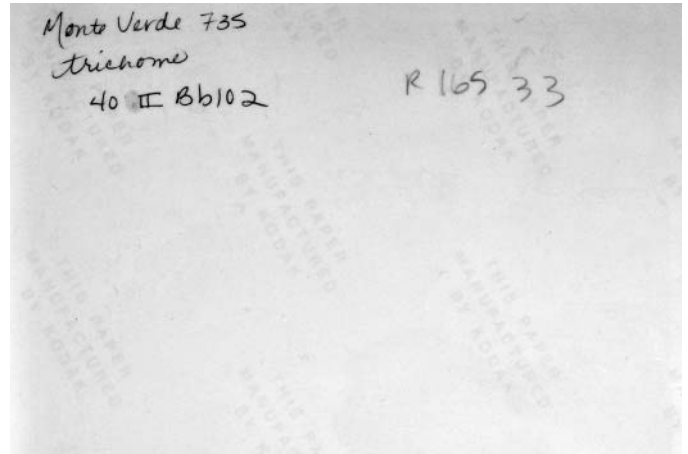 Monte Verde 735
trichome
40 II Bb102
R 165 33
THIS PAPER
MANUFACTURED
BY KODAK